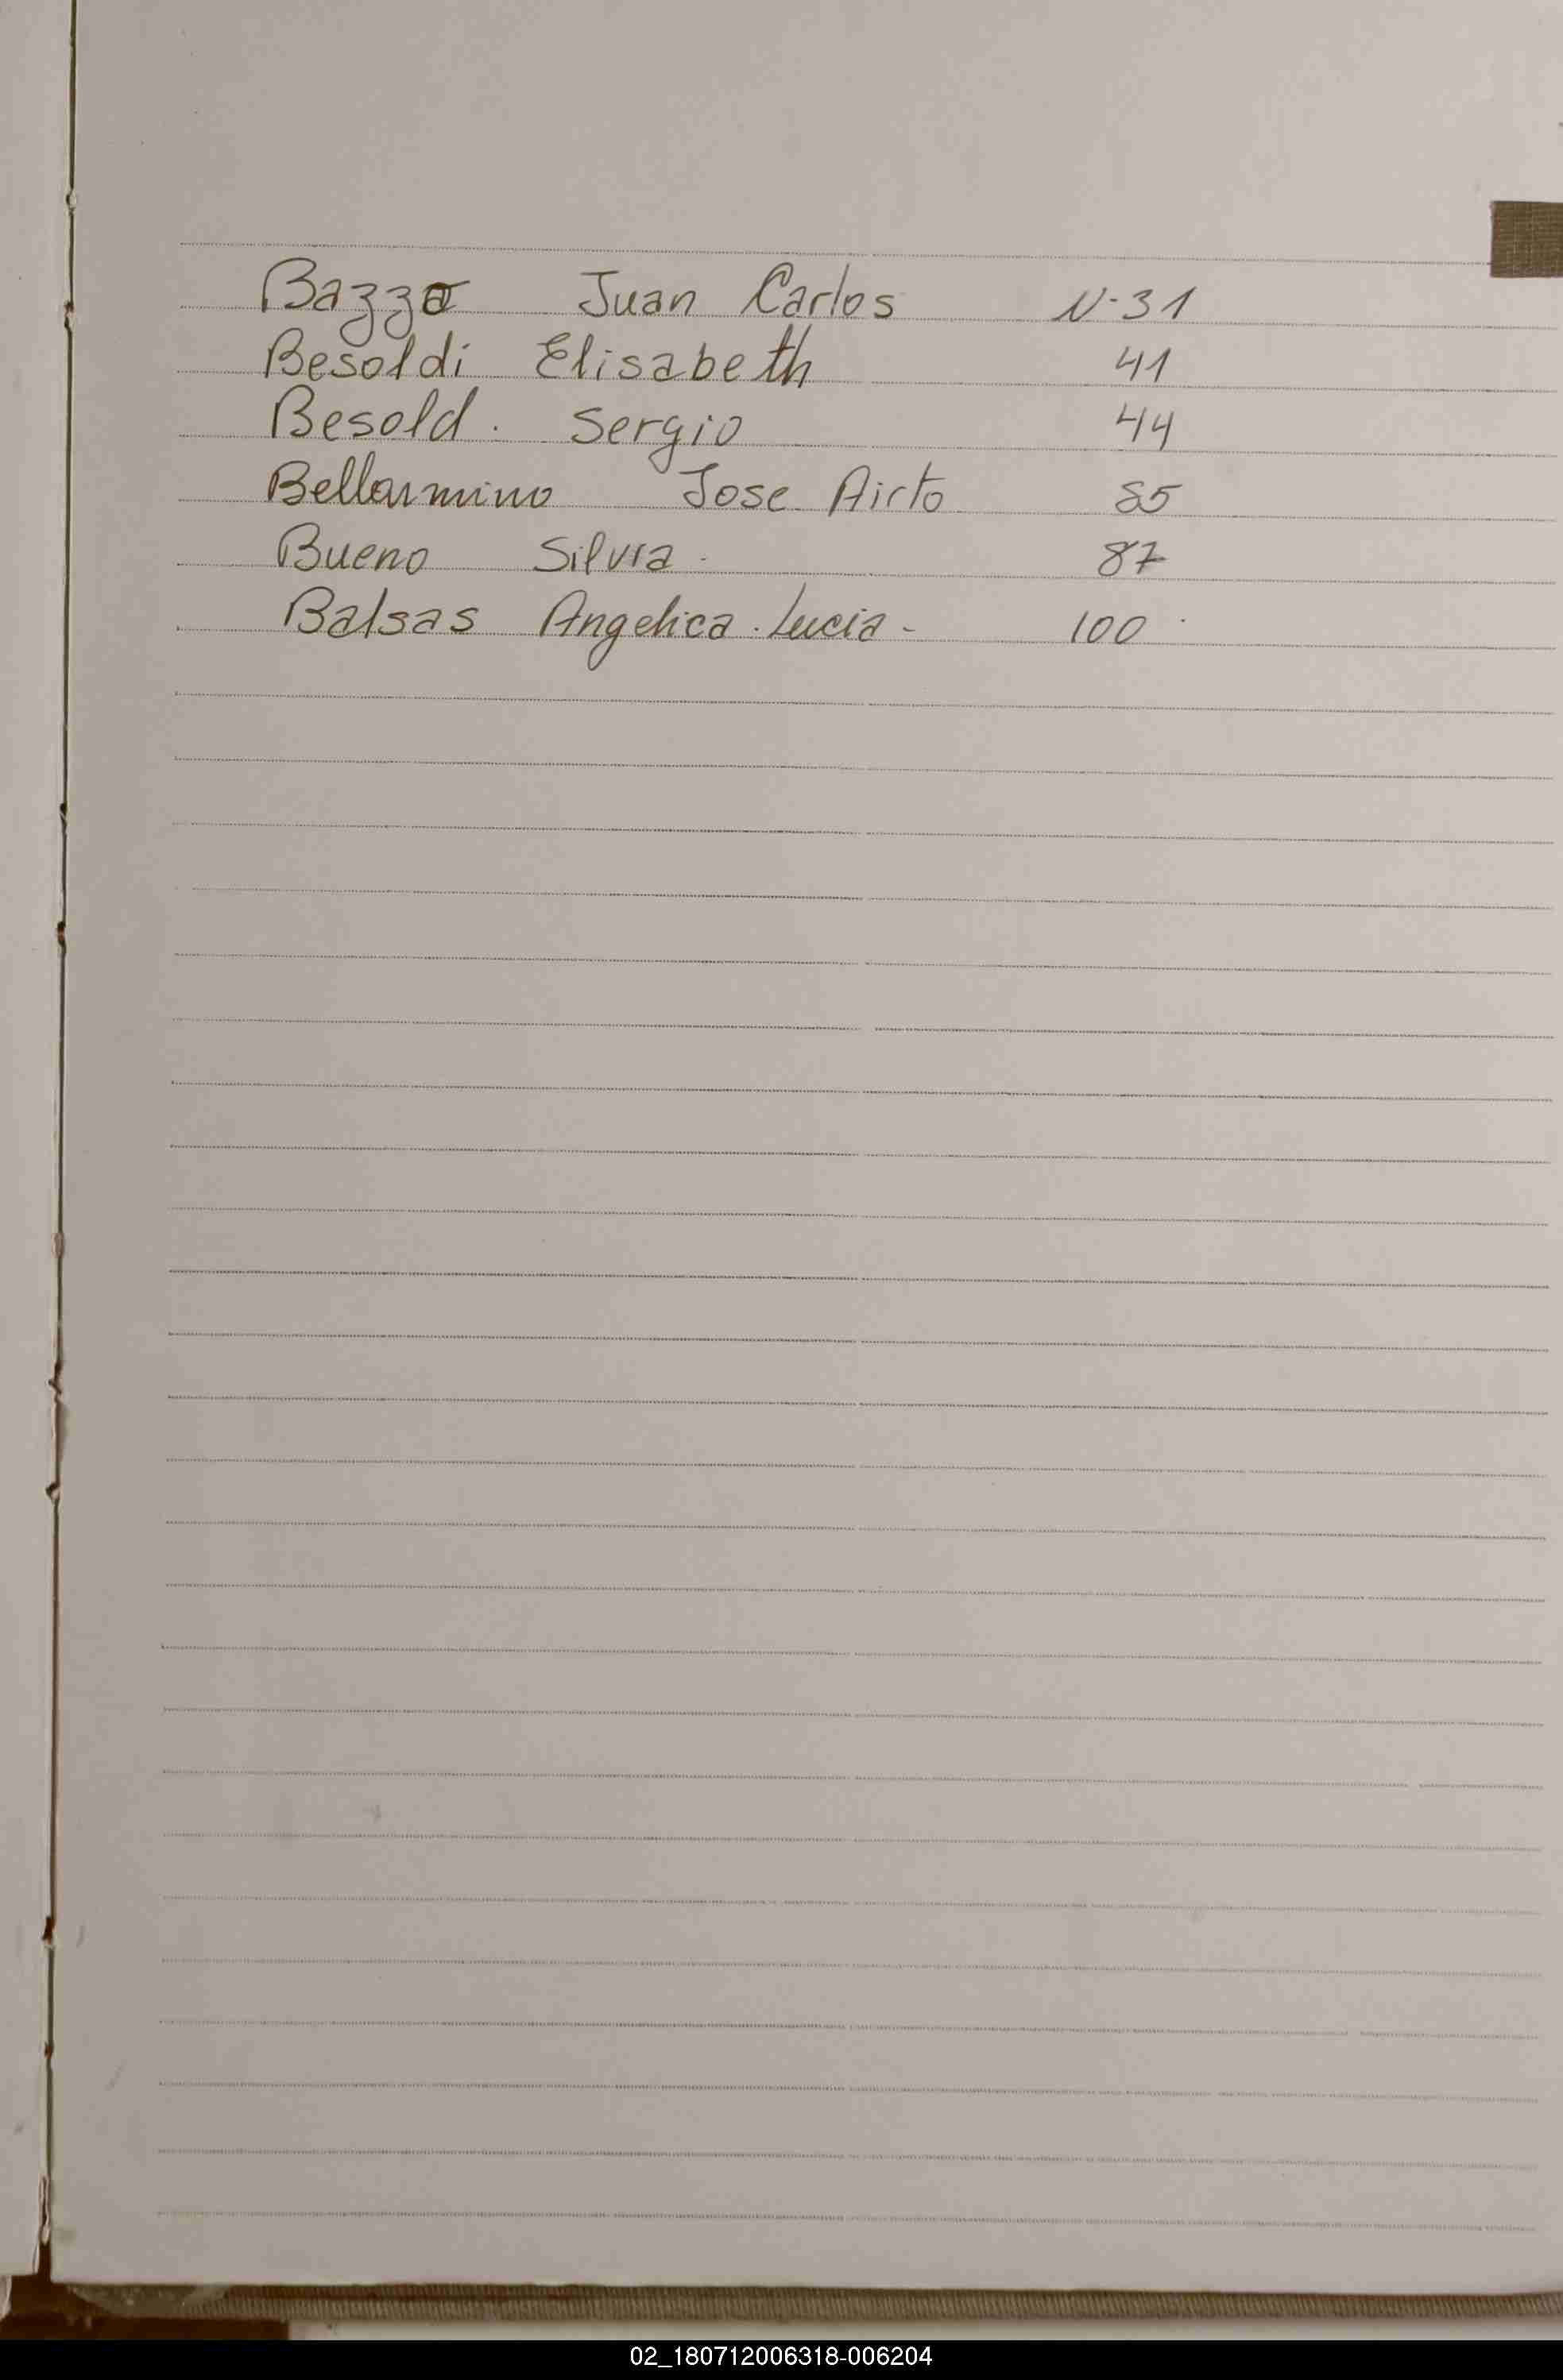 Bazzo Juan Carlos N-31
Besoldi Elisabeth 41
Besold. Sergio 44
Bellarmino Jose Airto 85
Bueno Silvia. 87
Balsas Angelica. Lucia- 100
02_180712006318-006204